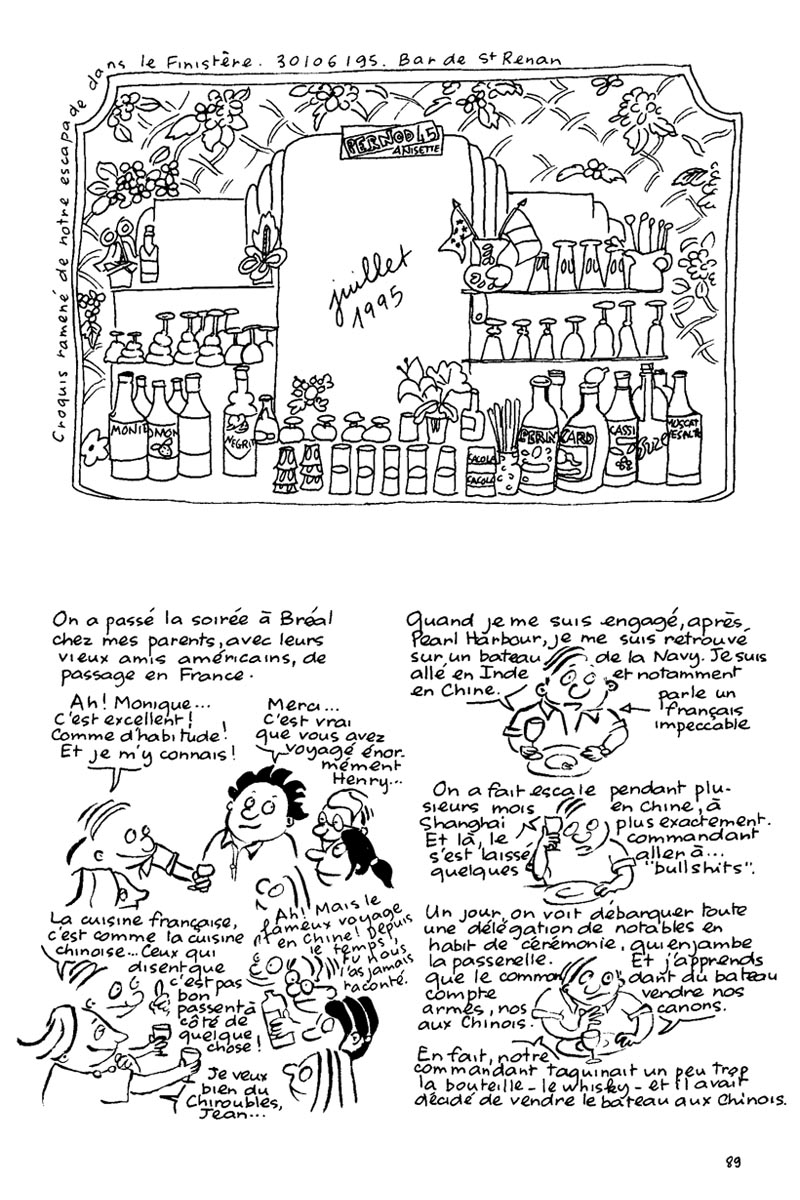 Croquis ramené de notre escapade dans le Finistère. 30/06/95. Bar de St Renan
PERNOD 45
ANISETTE
juillet
1995
MONIN
NEGRIT
PERN
CARD
CASSI
MUSCAT
CACOLA
CACOLA
On a passé la soirée à Bréal
chez mes parents, avec leurs
vieux amis américains, de
passage en France.
Ah! Monique...
C'est excellent!
Comme d'habitude!
Et je m'y connais!
Merci...
C'est vrai
que vous avez
voyagé énor-
mément
Henry...
La cuisine française,
c'est comme la cuisine
chinoise... Ceux qui
disent que
c'est pas
bon
passent à
côté de
quelque
chose!
Ah! Mais le
fameux voyage
en Chine! Depuis
le temps,
tu nous
l'as jamais
raconté.
Je veux
bien du
Chiroubles,
Jean...
Quand je me suis engagé, après
Pearl Harbour, je me suis retrouvé
sur un bateau de la Navy. Je suis
allé en Inde et notamment
en Chine.
parle un
français
impeccable
On a fait escale pendant plu-
sieurs mois en Chine, à
Shanghai plus exactement.
Et là, le commandant
s'est laissé aller à...
quelques "bullshits".
Un jour, on voit débarquer toute
une délégation de notables en
habit de cérémonie, qui enjambe
la passerelle. Et j'apprends
que le commandant du bateau
compte vendre nos
armes, nos canons.
aux Chinois.
En fait, notre
commandant taquinait un peu trop
la bouteille - le whisky - et il avait
décidé de vendre le bateau aux Chinois.
89